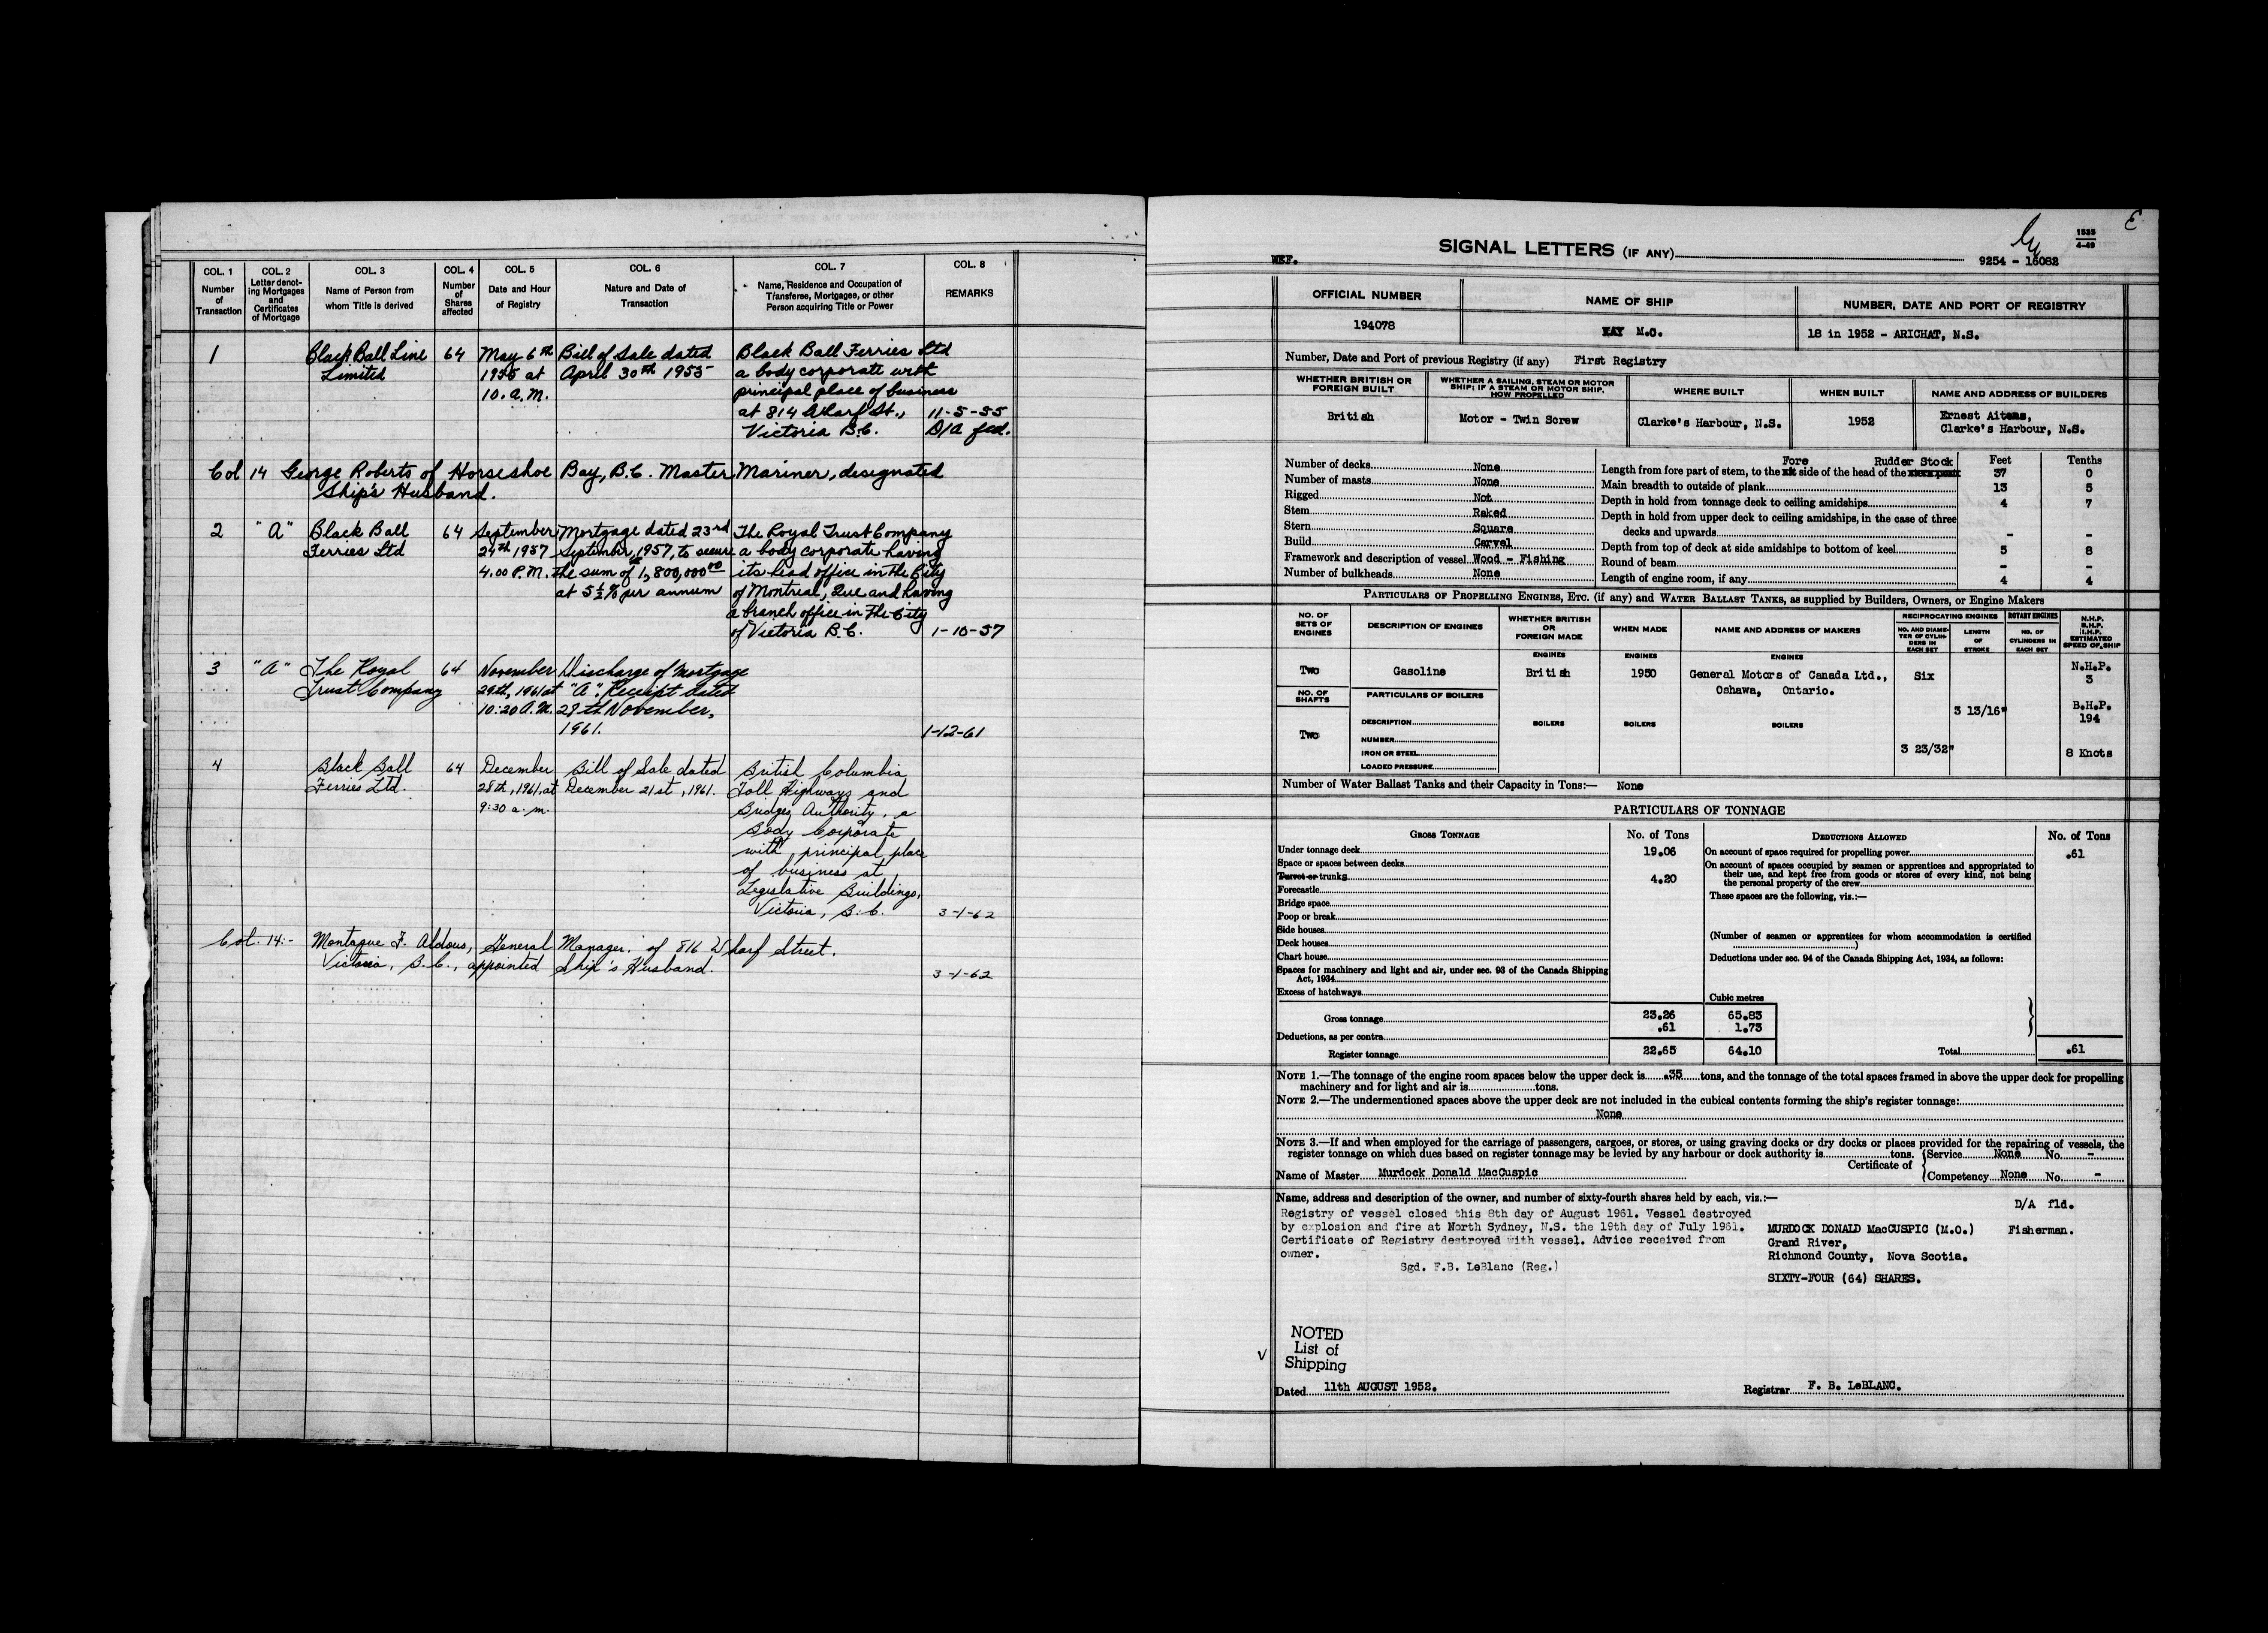 COL. 1
Number
of
Transaction
COL. 2
Letter denot-
ing Mortgages
and
Certificates
of Mortgage
COL. 3
Name of Person from
whom Title is derived
COL. 4
Number
of
Shares
affected
COL. 5
Date and Hour
of Registry
COL. 6
Nature and Date of
Transaction
COL. 7
Name, Residence and Occupation of
Transferee, Mortgagee, or other
Person acquiring Title or Power
COL. 8
REMARKS
1 Black Ball Line 64 May 6th Bill of Sale dated Black Ball Ferries Ltd
Limited 1955 at April 30th 1955 a body corporate with
10. A.M. principal place of business
at 814 Wharf St., 11-5-55
Victoria B.C. D/A fld.
Col 14 George Roberts of Horseshoe Bay, B.C. Master Mariner, designated
Ship's Husband.
2 "A" Black Ball 64 September Mortgage dated 23rd The Royal Trust Company
Ferries Ltd 24th 1957 September, 1957, to secure a body corporate having
4.00 P.M. the sum of 1,800,000.00 its head office in the City
at 5½% per annum of Montreal, Que and having
a branch office in the City
of Victoria B.C. 1-10-57
3 "A" The Royal 64 November Discharge of Mortgage
Trust Company 29th, 1961 at "A". Receipt dated
10:20 A.M. 28th November,
1961. 1-12-61
4 Black Ball 64 December Bill of Sale dated British Columbia
Ferries Ltd. 28th, 1961, at December 21st, 1961. Toll Highways and
9:30 a.m. Bridges Authority, a
Body Corporate
with principal place
of business at
Legislative Buildings,
Victoria, B.C. 3-1-62
Col. 14:- Montague F. Aldous, General Manager. of 816 Wharf Street.
Victoria, B.C., appointed Ship's Husband.
3-1-62
E
1535
4-49
SIGNAL LETTERS (IF ANY)
WEF. 9254 - 16082
OFFICIAL NUMBER NAME OF SHIP NUMBER, DATE AND PORT OF REGISTRY
194078 KAY M.O. 18 in 1952 - ARICHAT, N.S.
Number, Date and Port of previous Registry (if any) First Registry
WHETHER BRITISH OR
FOREIGN BUILT
WHETHER A SAILING, STEAM OR MOTOR
SHIP; IF A STEAM OR MOTOR SHIP,
HOW PROPELLED
WHERE BUILT WHEN BUILT NAME AND ADDRESS OF BUILDERS
British Motor - Twin Screw Clarke's Harbour, N.S. 1952 Ernest Aitens,
Clarke's Harbour, N.S.
Number of decks None
Number of masts None
Rigged Not
Stem Raked
Stern Square
Build Carvel
Framework and description of vessel Wood - Fishing
Number of bulkheads None
Fore Rudder Stock Feet Tenths
Length from fore part of stem, to the aft side of the head of the stern post 37 0
Main breadth to outside of plank 13 5
Depth in hold from tonnage deck to ceiling amidships 4 7
Depth in hold from upper deck to ceiling amidships, in the case of three
decks and upwards - -
Depth from top of deck at side amidships to bottom of keel 5 8
Round of beam - -
Length of engine room, if any 4 4
PARTICULARS OF PROPELLING ENGINES, ETC. (if any) and WATER BALLAST TANKS, as supplied by Builders, Owners, or Engine Makers
NO. OF
SETS OF
ENGINES
DESCRIPTION OF ENGINES
WHETHER BRITISH
OR
FOREIGN MADE
WHEN MADE
NAME AND ADDRESS OF MAKERS
RECIPROCATING ENGINES ROTARY ENGINES
NO. AND DIAME-
TER OF CYLIN-
DERS IN
EACH SET
LENGTH
OF
STROKE
NO. OF
CYLINDERS IN
EACH SET
N.H.P.
B.H.P.
I.H.P.
ESTIMATED
SPEED OF SHIP
ENGINES ENGINES ENGINES
Two Gasoline British 1950 General Motors of Canada Ltd., Six N.H.P.
Oshawa, Ontario. 3
NO. OF
SHAFTS
PARTICULARS OF BOILERS
3 13/16" B.H.P.
194
DESCRIPTION BOILERS BOILERS BOILERS
Two
NUMBER
IRON OR STEEL 3 23/32" 8 Knots
LOADED PRESSURE
Number of Water Ballast Tanks and their Capacity in Tons:— None
PARTICULARS OF TONNAGE
GROSS TONNAGE No. of Tons DEDUCTIONS ALLOWED No. of Tons
Under tonnage deck 19.06
Space or spaces between decks
Turret or trunks 4.20
Forecastle
Bridge space
Poop or break
Side houses
Deck houses
Chart house
Spaces for machinery and light and air, under sec. 93 of the Canada Shipping
Act, 1934
Excess of hatchways
On account of space required for propelling power .61
On account of spaces occupied by seamen or apprentices and appropriated to
their use, and kept free from goods or stores of every kind, not being
the personal property of the crew
These spaces are the following, viz.:—
(Number of seamen or apprentices for whom accommodation is certified
)
Deductions under sec. 94 of the Canada Shipping Act, 1934, as follows:
Cubic metres
Gross tonnage 23.26 65.83
Deductions, as per contra .61 1.73
Register tonnage 22.65 64.10 Total .61
NOTE 1.—The tonnage of the engine room spaces below the upper deck is .35 tons, and the tonnage of the total spaces framed in above the upper deck for propelling
machinery and for light and air is tons.
NOTE 2.—The undermentioned spaces above the upper deck are not included in the cubical contents forming the ship's register tonnage:
None
NOTE 3.—If and when employed for the carriage of passengers, cargoes, or stores, or using graving docks or dry docks or places provided for the repairing of vessels, the
register tonnage on which dues based on register tonnage may be levied by any harbour or dock authority is tons.
Certificate of
Service None No. -
Competency None No. -
Name of Master Murdock Donald MacCuspic
Name, address and description of the owner, and number of sixty-fourth shares held by each, viz.:—
Registry of vessel closed this 8th day of August 1961. Vessel destroyed
by explosion and fire at North Sydney, N.S. the 19th day of July 1961.
Certificate of Registry destroyed with vessel. Advice received from
owner.
Sgd. F.B. LeBlanc (Reg.)
D/A fld.
MURDOCK DONALD MacCUSPIC (M.O.) Fisherman.
Grand River,
Richmond County, Nova Scotia.
SIXTY-FOUR (64) SHARES.
NOTED
List of
Shipping
Dated 11th AUGUST 1952. Registrar F. B. LeBLANC.